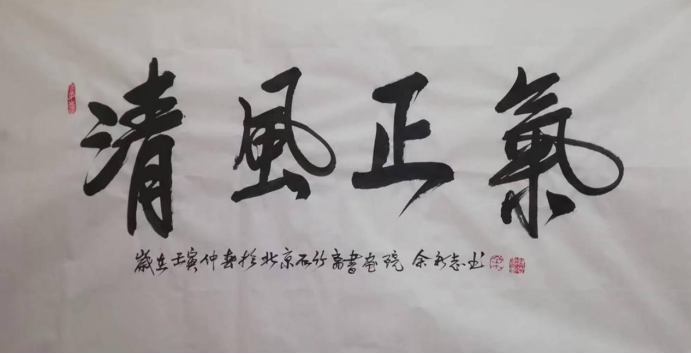 清風正氣
歲在壬寅仲春於北京石竹齋書畫院 余永志书